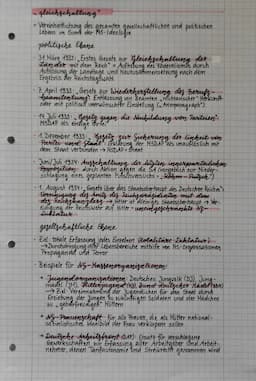 "Gleichschaltung"
• Vereinheitlichung des gesamten gesellschaftlichen und politischen
Lebens im Sinne der NS-Ideologie
politische Ebene
31. März 1933: „Erstes Gesetz zur Gleichschaltung der
Länder mit dem Reich" → Aufhebung des Föderalismus durch
Auflösung der Landtage und Neuzusammensetzung nach dem
Ergebnis der Reichstagswahl
7. April 1933: „Gesetz zur Wiederherstellung des Berufs-
beamtentums": Entlassung von Beamten „nichtarischer" Herkunft
oder mit politisch unerwünschter Einstellung („Arierparagraph")
14. Juli 1933: „Gesetz gegen die Neubildung von Parteien":
NSDAP als einzige
1. Dezember 1933: „Gesetz zur Sicherung der Einheit von
Partei und Staat": NSDAP als unauflöslich mit
dem Staat verbunden → NSDAP = Staat
Juni/Juli 1934: Ausschaltung der letzten innerparteilichen
Opposition durch Aktion gegen die SA (angeblich zur Nieder-
schlagung eines geplanten Putschversuchs → „Röhm-Putsch")
1. August 1934: „Gesetz über das Staatsoberhaupt des Deutschen Reichs":
Vereinigung des Amts des Reichspräsidenten mit dem
des Reichskanzlers → Hitler ist alleiniges Staatsoberhaupt → Ver-
eidigung der Reichswehr auf Hitler → uneingeschränkte NS-
Diktatur
gesellschaftliche Ebene
• Ziel: totale Erfassung jedes Einzelnen (totalitäre Diktatur)
→ Durchdringung aller Lebensbereiche mithilfe von NS-Organisationen,
Propaganda und Terror
• Beispiele für NS-Massenorganisationen:
→ Jugendorganisationen: Deutsches Jungvolk (DJ), Jung-
mädel (JM), Hitlerjugend (HJ), Bund deutscher Mädel (BDM)
→ Ziel: Vereinnahmung der Jugendlichen für den Staat durch
Erziehung der Jungen zu Soldaten und der Mädchen
zu Müttern
→ NS-Frauenschaft: für alle Frauen, die als Mütter national-
sozialistisches Idealbild der Frau verkörpern sollen
→ Deutsche Arbeitsfront (DAF): Ersatz für zerschlagene
Gewerkschaften, zur Erfassung aller Arbeitgeber und Arbeit-
nehmer, denen Tarifautonomie und Streikrecht genommen wird